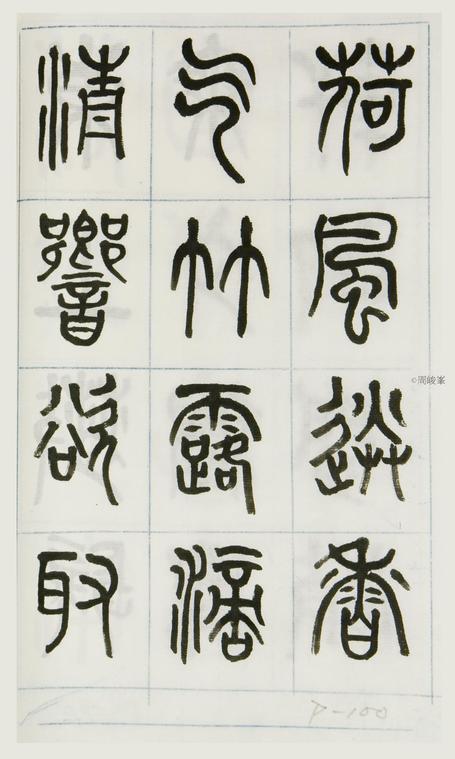 荷風送香
气竹露滴
清響欲取
©周峻峯
P-100